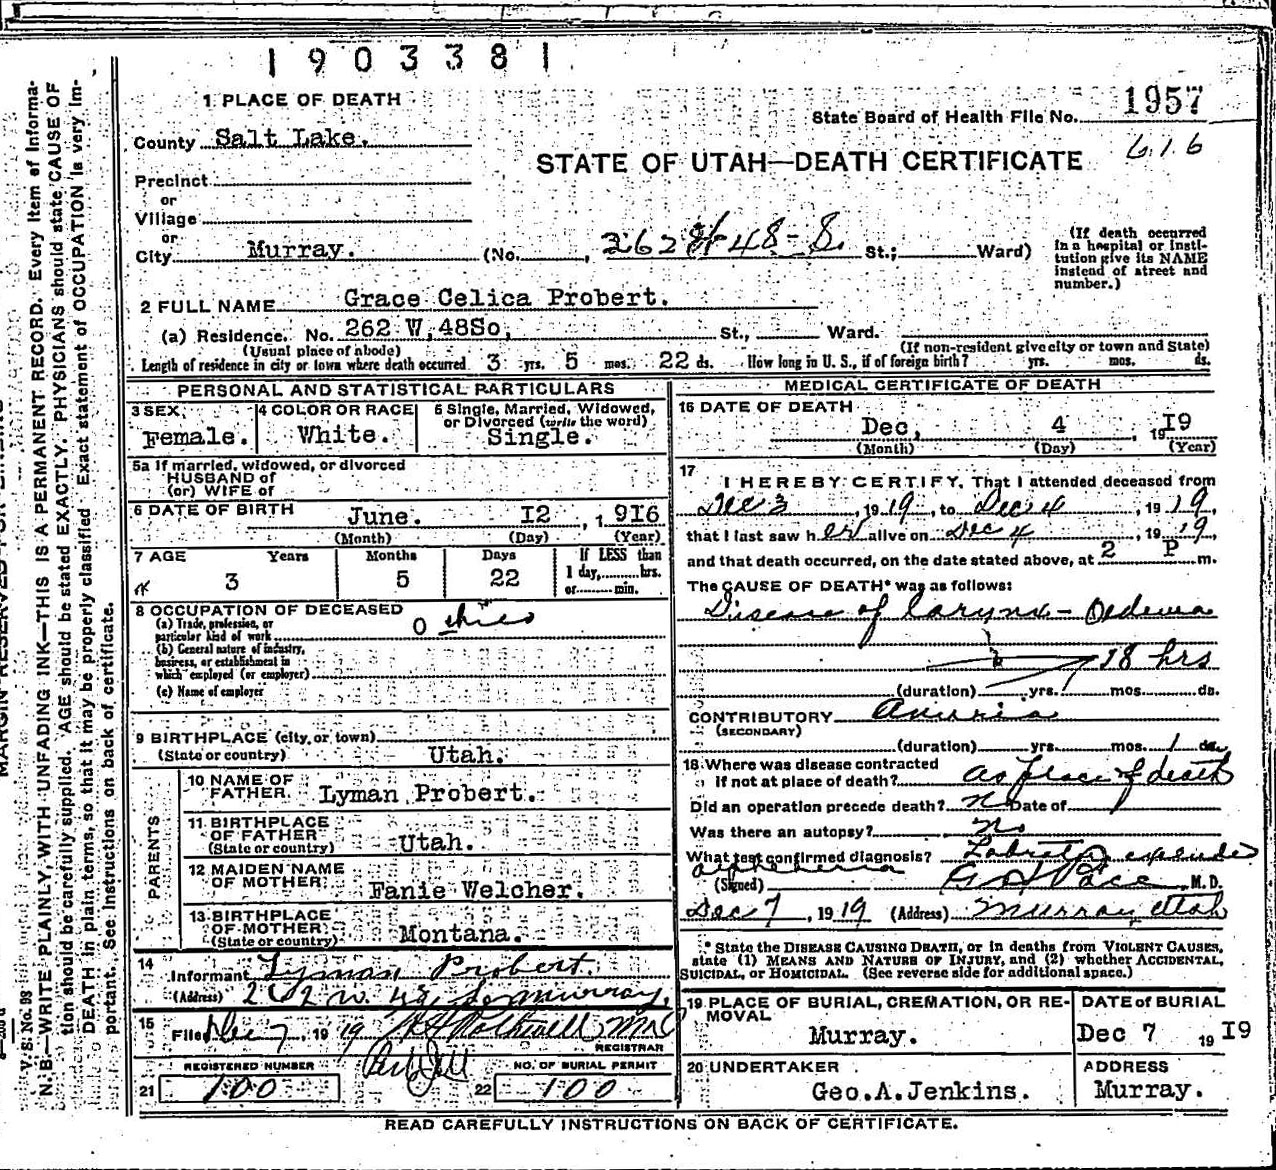 1903381
1 PLACE OF DEATH
State Board of Health File No. 1957
County Salt Lake.
616
STATE OF UTAH—DEATH CERTIFICATE
Precinct
or
Village
or
City Murray. (No. , 262 W 48-S. St.; Ward)
(If death occurred
in a hospital or insti-
tution give its NAME
instead of street and
number.)
2 FULL NAME Grace Celica Probert.
(a) Residence. No. 262 W,48So, St., Ward.
(Usual place of abode) (If non-resident give city or town and State)
Length of residence in city or town where death occurred 3 yrs. 5 mos. 22 ds. How long in U. S., if of foreign birth? yrs. mos. ds.
PERSONAL AND STATISTICAL PARTICULARS
3 SEX 4 COLOR OR RACE 5 Single, Married, Widowed,
or Divorced (write the word)
Female. White. Single.
5a If married, widowed, or divorced
HUSBAND of
(or) WIFE of
6 DATE OF BIRTH June. I2 , 1 9I6
(Month) (Day) (Year)
7 AGE Years Months Days If LESS than
1 day, hrs.
or min.
3 5 22
8 OCCUPATION OF DECEASED
(a) Trade, profession, or
particular kind of work 0
(b) General nature of industry,
business, or establishment in
which employed (or employer)
(c) Name of employer
9 BIRTHPLACE (city or town)
(State or country) Utah.
PARENTS
10 NAME OF
FATHER Lyman Probert.
11 BIRTHPLACE
OF FATHER
(State or country) Utah.
12 MAIDEN NAME
OF MOTHER Fanie Welcher.
13 BIRTHPLACE
OF MOTHER
(State or country) Montana.
14
Informant Lyman Probert.
(Address) 262 W. 48 So Murray,
15
Filed Dec 7, 1919
REGISTRAR
REGISTERED NUMBER NO. OF BURIAL PERMIT
21 100 22 100
MEDICAL CERTIFICATE OF DEATH
16 DATE OF DEATH
Dec, 4 , 19I9
(Month) (Day) (Year)
17
I HEREBY CERTIFY, That I attended deceased from
Dec 3 , 1919, to Dec 4 , 1919,
that I last saw h er alive on Dec 4 , 1919,
and that death occurred, on the date stated above, at 2 P m.
The CAUSE OF DEATH* was as follows:
Disease of larynx - Oedema
18 hrs
(duration) yrs. mos. ds.
CONTRIBUTORY Anuria
(SECONDARY)
(duration) yrs. mos. 1 ds.
18 Where was disease contracted
if not at place of death? as place of death
Did an operation precede death? no Date of
Was there an autopsy? No
What test confirmed diagnosis?
(Signed) G H Pace, M.D.
Dec 7 , 1919 (Address) Murray Utah
* State the DISEASE CAUSING DEATH, or in deaths from VIOLENT CAUSES,
state (1) MEANS AND NATURE OF INJURY, and (2) whether ACCIDENTAL,
SUICIDAL, or HOMICIDAL. (See reverse side for additional space.)
19 PLACE OF BURIAL, CREMATION, OR RE-
MOVAL
Murray.
DATE of BURIAL
Dec 7 19I9
20 UNDERTAKER
Geo.A.Jenkins.
ADDRESS
Murray.
READ CAREFULLY INSTRUCTIONS ON BACK OF CERTIFICATE.
V. S. No. 98
N. B.—WRITE PLAINLY, WITH UNFADING INK—THIS IS A PERMANENT RECORD. Every item of informa-
tion should be carefully supplied. AGE should be stated EXACTLY. PHYSICIANS should state CAUSE OF
DEATH in plain terms, so that it may be properly classified. Exact statement of OCCUPATION is very im-
portant. See instructions on back of certificate.